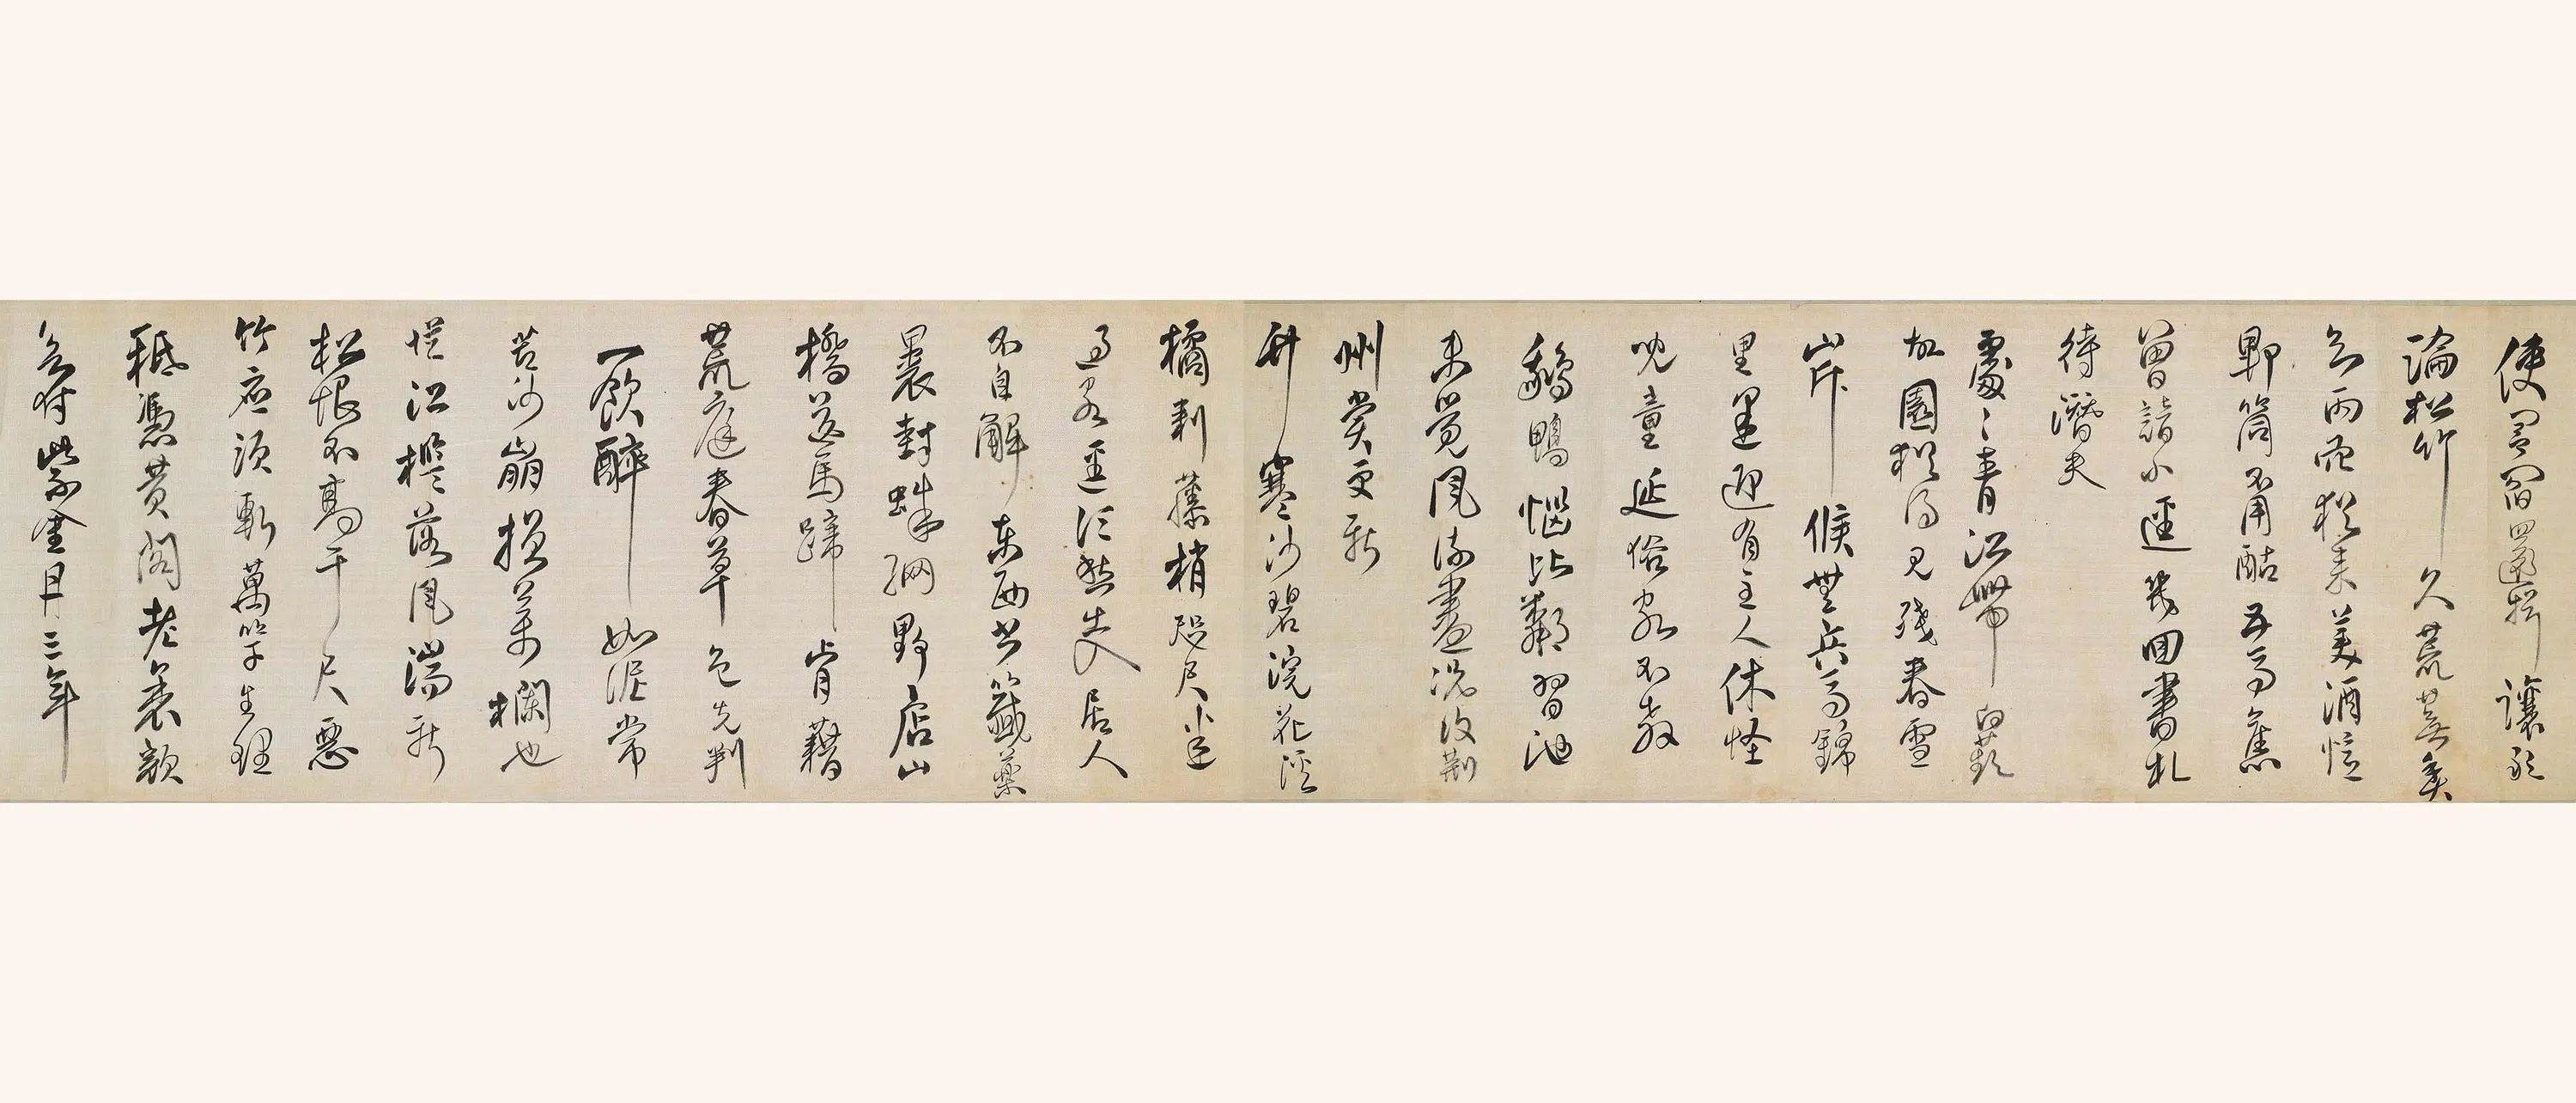 使閭閻還揖讓敢
論松竹久荒蕪魚
知丙穴猶来美酒憶
郫筒不用酤五馬舊
曾諳小逕幾回書札
待潛夫
處〻青江帶白蘋
故園猶得見残春雪
山斥候無兵馬錦
里逢迎有主人休怪
兒童延俗客不教
鵝鴨惱比鄰習池
未覺風流盡況復荆
州賞更新
竹寒沙碧浣花溪
橘刺藤梢咫尺迷
過客逕須愁出入居人
不自解東西書籤藥
裹封蛛網野店山
橋送馬蹄肯藉
荒庭春草色先判
一飲醉如泥常
苦沙崩損藥欄也
從江檻落風湍新
松恨不高千尺惡
竹應須斬萬竿生理
秪憑黃閣老衰顏
欲付紫金丹三年